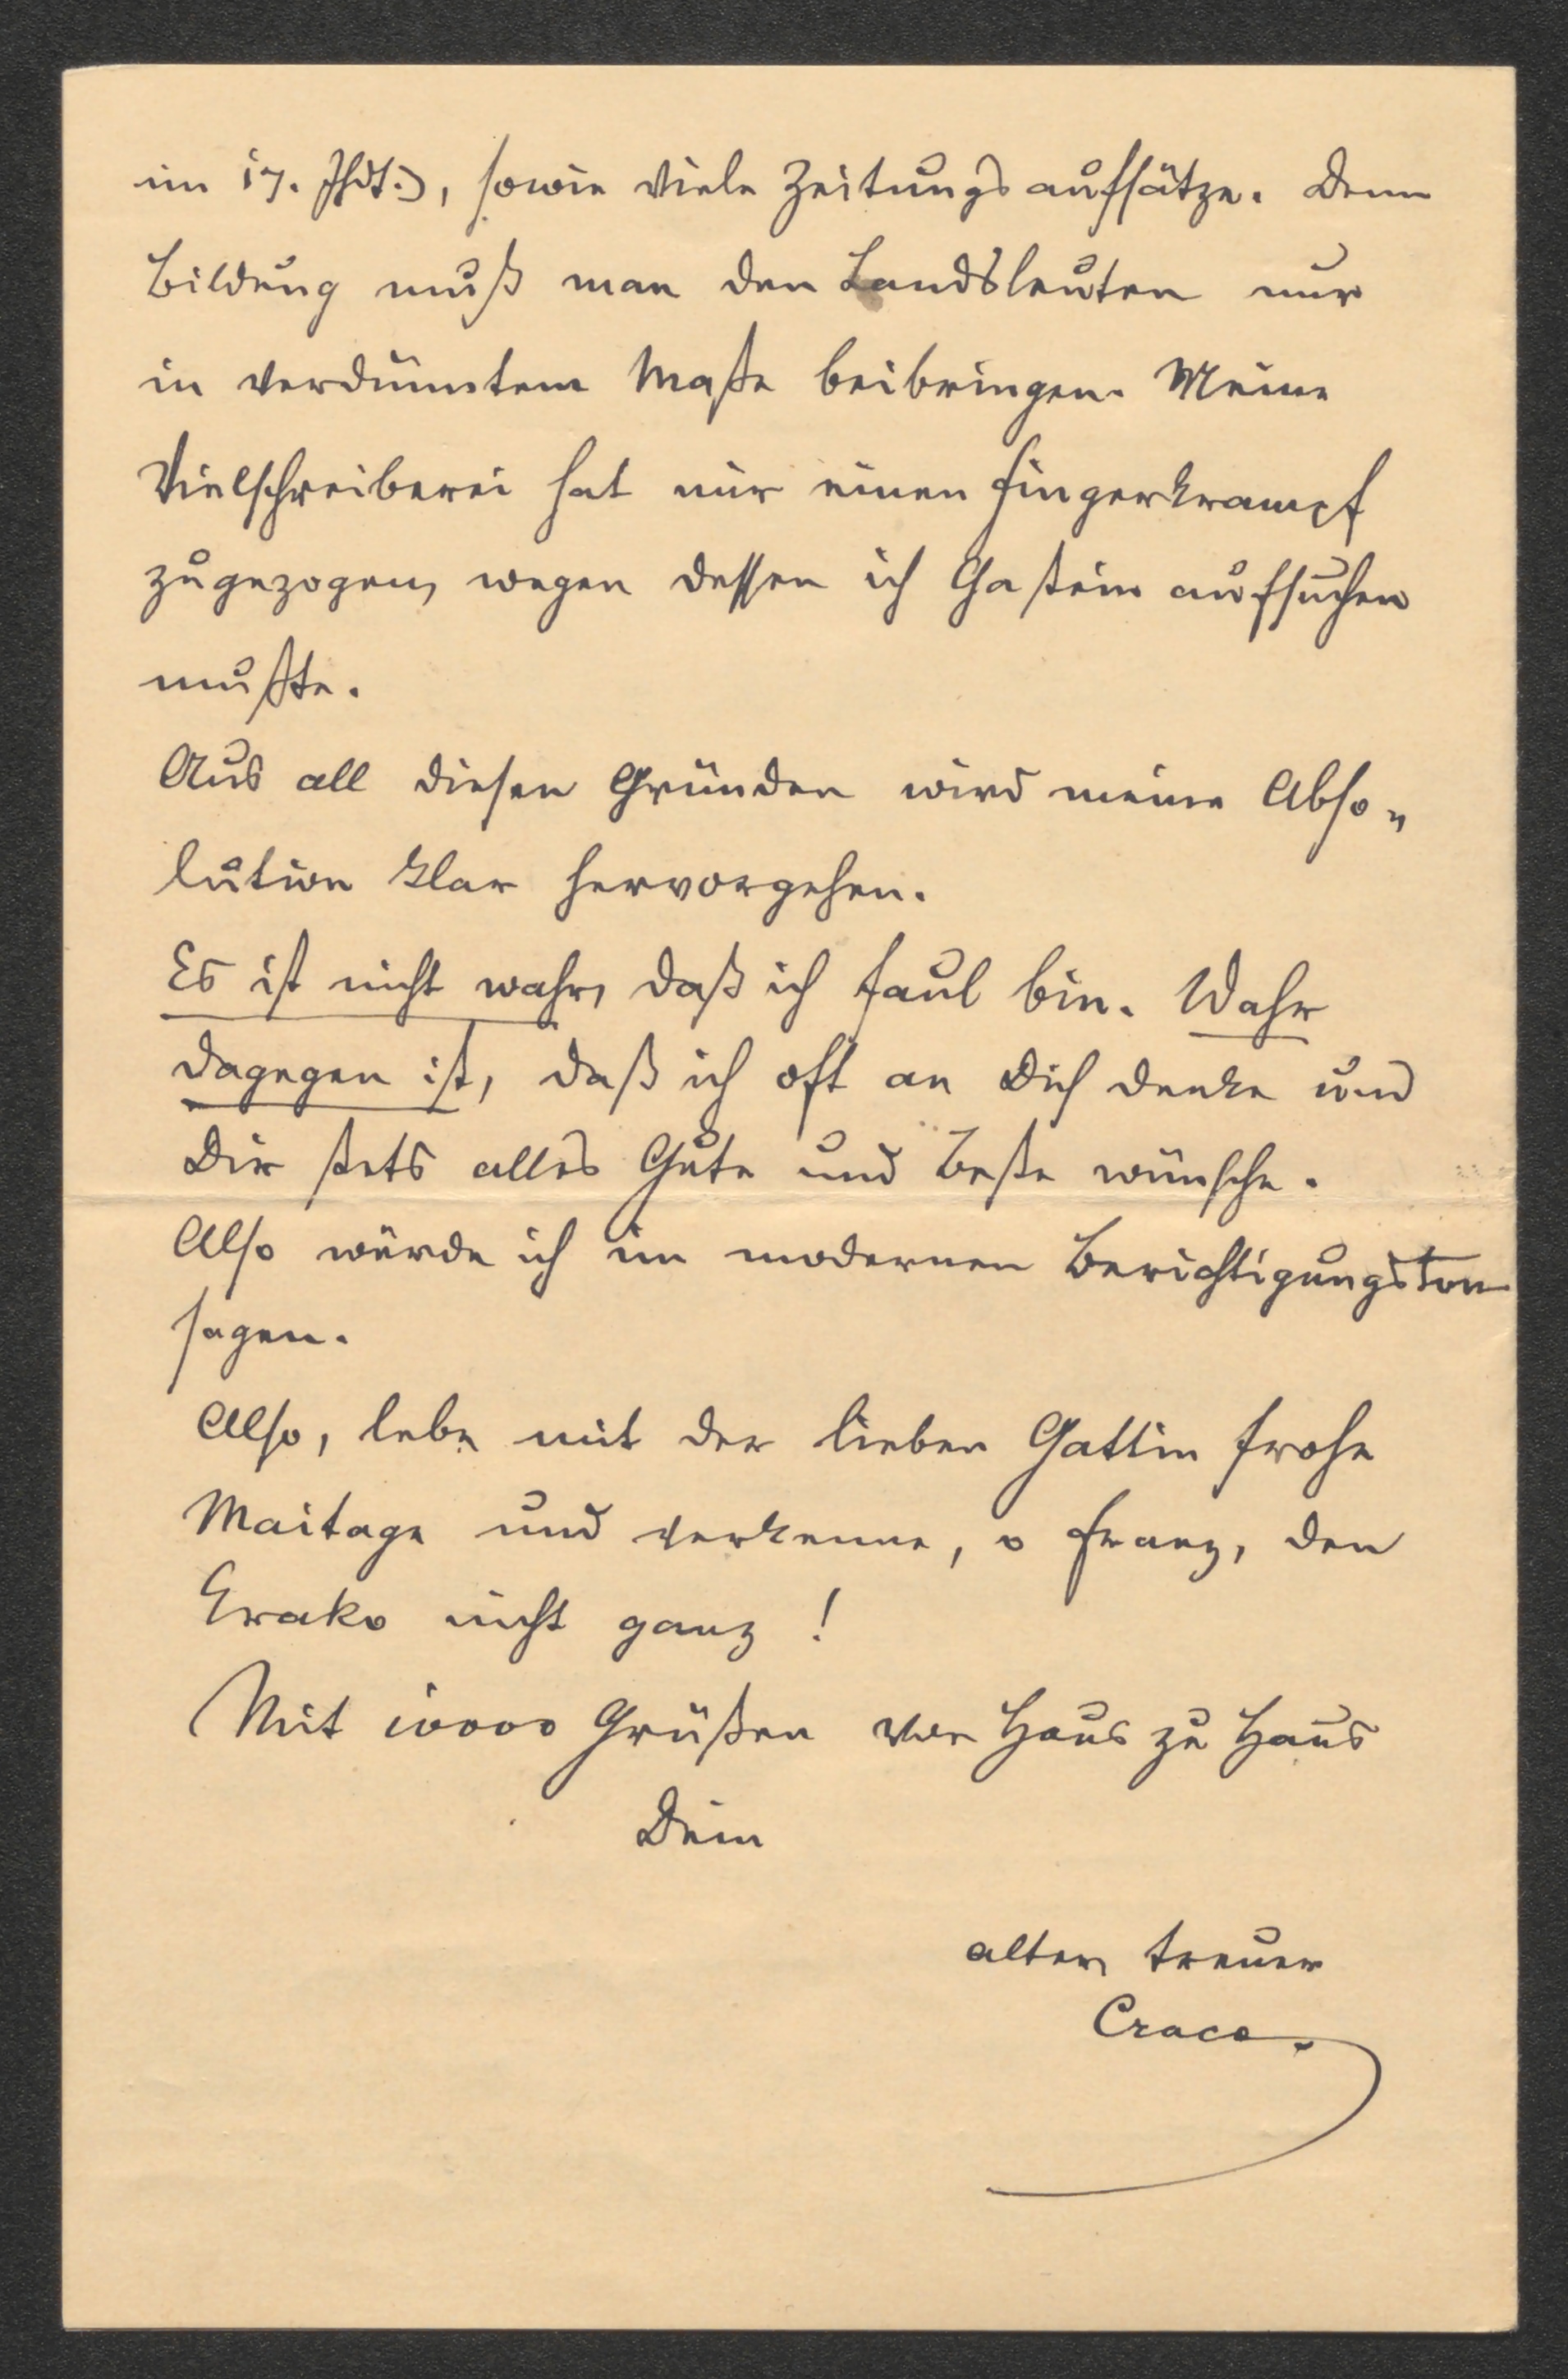 im 17. Jhdt.), sowie viele Zeitungsaufsätze. Denn
Bildung muß man den Landsleuten nur
in verdünntem Maße beibringen. Meine
Vielschreiberei hat mir einen Fingerkrampf
zugezogen, wegen dessen ich Gastein aufsuchen
mußte.
Aus all diesen Gründen wird meine Abso„
lution klar hervorgehen.
Es ist nicht wahr, daß ich faul bin. Wahr
dagegen ist, daß ich oft an Dich denke und
Dir stets alles Gute und Beste wünsche.
Also würde ich im modernen Berichtigungston
sagen.
Also, lebe mit der lieben Gattin frohe
Maitage und verkenne, o Franz, den
Crako nicht ganz!
Mit 10000 Grüßen von Haus zu Haus
Dein
alter, treuer
Craco.